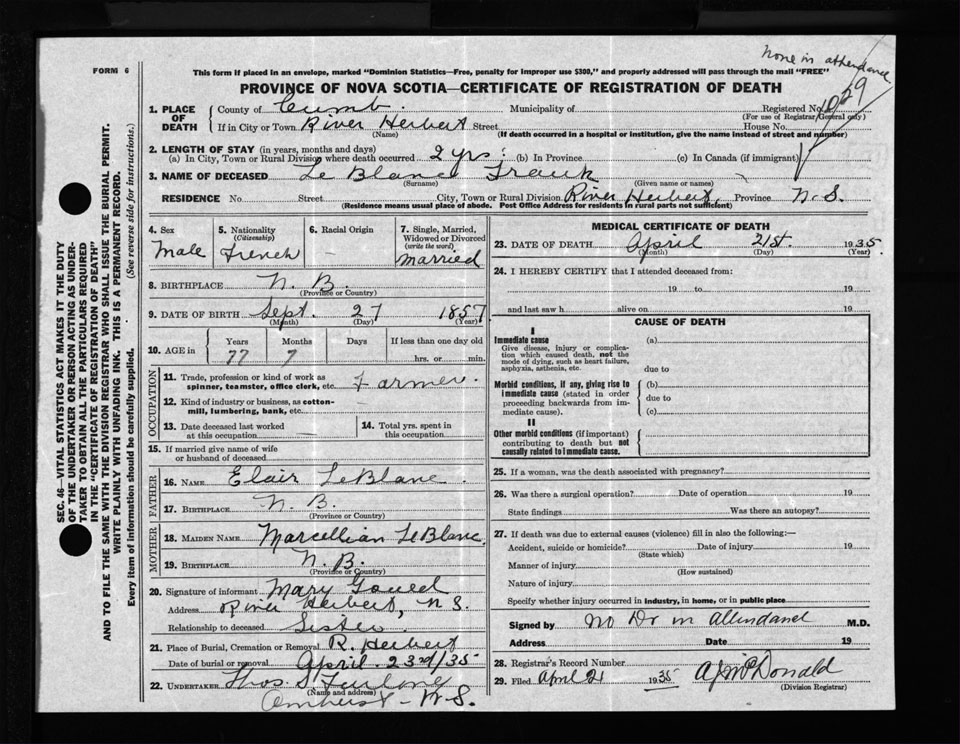 None in attendance
FORM 6
This form if placed in an envelope, marked "Dominion Statistics—Free, penalty for improper use $300," and properly addressed will pass through the mail "FREE"
PROVINCE OF NOVA SCOTIA—CERTIFICATE OF REGISTRATION OF DEATH
1. PLACE OF DEATH County of Cumb. Municipality of Registered No. 1029
(For use of Registrar General only)
If in City or Town River Herbert Street House No.
(Name) (If death occurred in a hospital or institution, give the name instead of street and number)
2. LENGTH OF STAY (in years, months and days)
(a) In City, Town or Rural Division where death occurred 2 yrs: (b) In Province (c) In Canada (if immigrant)
3. NAME OF DECEASED Le Blanc Frank
(Surname) (Given name or names)
RESIDENCE No. Street City, Town or Rural Division River Herbert, Province N.S.
(Residence means usual place of abode. Post Office Address for residents in rural parts not sufficient)
4. Sex
Male
5. Nationality
(Citizenship)
French
6. Racial Origin
–
7. Single, Married, Widowed or Divorced
(write the word)
Married
8. BIRTHPLACE N. B.
(Province or Country)
9. DATE OF BIRTH Sept. 27 1857
(Month) (Day) (Year)
10. AGE in Years Months Days If less than one day old
77 7 hrs. or min.
OCCUPATION
11. Trade, profession or kind of work as spinner, teamster, office clerk, etc. Farmer.
12. Kind of industry or business, as cotton-mill, lumbering, bank, etc.
13. Date deceased last worked at this occupation
14. Total yrs. spent in this occupation
15. If married give name of wife or husband of deceased
FATHER
16. NAME Elair LeBlanc.
17. BIRTHPLACE N. B.
(Province or Country)
MOTHER
18. MAIDEN NAME Marcellian LeBlanc.
19. BIRTHPLACE N. B.
(Province or Country)
20. Signature of informant Mary Gould
Address River Herbert, N S.
Relationship to deceased Sister
21. Place of Burial, Cremation or Removal R. Herbert
Date of burial or removal April. 23rd/35
22. UNDERTAKER Thos. S Furlong
(Name and address)
Amherst – N.S.
MEDICAL CERTIFICATE OF DEATH
23. DATE OF DEATH April 21st. 1935
(Month) (Day) (Year)
24. I HEREBY CERTIFY that I attended deceased from:
19 to 19
and last saw h alive on 19
CAUSE OF DEATH
I
Immediate cause
Give disease, injury or complication which caused death, not the mode of dying, such as heart failure, asphyxia, asthenia, etc.
(a)
due to
Morbid conditions, if any, giving rise to immediate cause (stated in order proceeding backwards from immediate cause).
(b)
due to
(c)
II
Other morbid conditions (if important) contributing to death but not causally related to immediate cause.
25. If a woman, was the death associated with pregnancy?
26. Was there a surgical operation? Date of operation 19
State findings Was there an autopsy?
27. If death was due to external causes (violence) fill in also the following:—
Accident, suicide or homicide? Date of injury 19
(State which)
Manner of injury
(How sustained)
Nature of injury
Specify whether injury occurred in industry, in home, or in public place
Signed by No Dr in Attendance M.D.
Address Date 19
28. Registrar's Record Number
29. Filed April 21 1935 McDonald
(Division Registrar)
SEC. 46—VITAL STATISTICS ACT MAKES IT THE DUTY
OF THE UNDERTAKER OR PERSON ACTING AS UNDER-
TAKER TO OBTAIN ALL THE PARTICULARS REQUIRED
IN THE "CERTIFICATE OF REGISTRATION OF DEATH"
AND TO FILE THE SAME WITH THE DIVISION REGISTRAR WHO SHALL ISSUE THE BURIAL PERMIT.
WRITE PLAINLY WITH UNFADING INK. THIS IS A PERMANENT RECORD.
Every item of information should be carefully supplied. (See reverse side for instructions.)